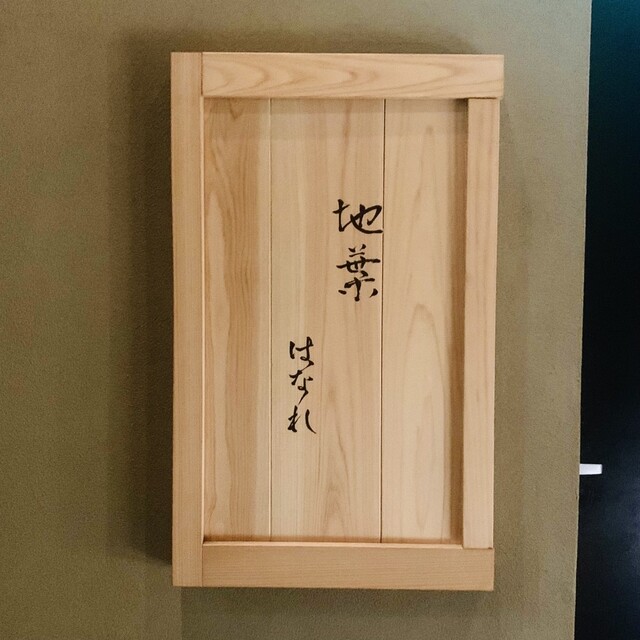 地葉
はなれ